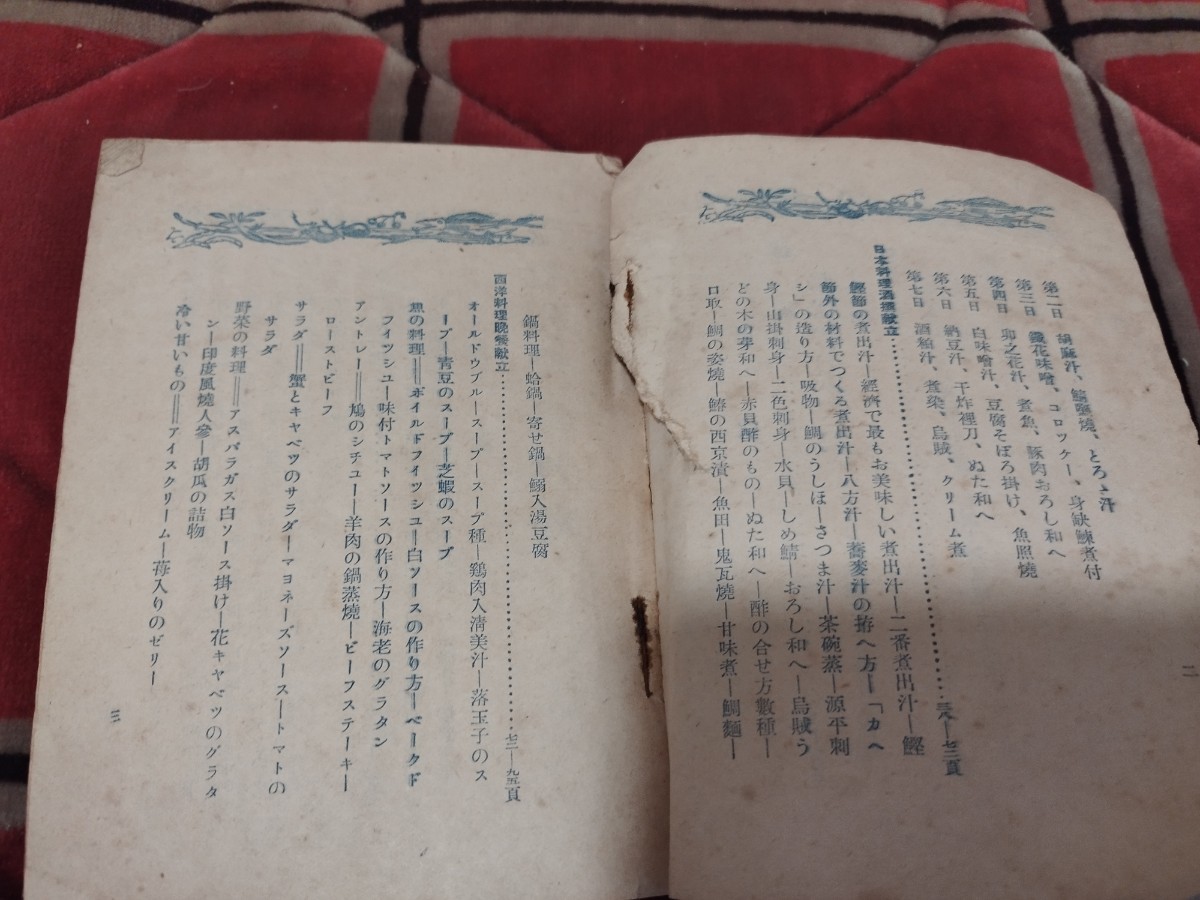 二
第二日 胡麻汁、鰯鹽燒、とろゝ汁
第三日 纎花味噌、コロツケー、身缺鰊煮付
第四日 卯之花汁、煮魚、豚肉おろし和へ
第五日 白味噌汁、豆腐そぼろ掛け、魚照燒
第六日 納豆汁、干炸裡刀、ぬた和へ
第七日 酒粕汁、煮染、烏賊、クリーム煮
日本料理酒撰献立……三八―七二頁
鰹節の煮出汁―經濟で最もお美味しい煮出汁―二番煮出汁―鰹
節外の材料でつくる煮出汁―八方汁―蕎麥汁の拵へ方―「カヘ
シ」の造り方―吸物―鯛のうしほ―さつま汁―茶碗蒸―源平刺
身―山掛刺身―二色刺身―水貝―しめ鯖―おろし和へ―烏賊う
どの木の芽和へ―赤貝酢のもの―ぬた和へ―酢の合せ方數種―
口取―鯛の姿燒―鰆の西京漬―魚田―鬼瓦燒―甘味煮―鯛麵―
鍋料理―蛤鍋―寄せ鍋―鰯入湯豆腐
西洋料理晩餐献立……七二―九五頁
オールドウブル―スープ―スープ種―鷄肉入淸美汁―落玉子のス
ープ―靑豆のスープ―芝蝦のスープ
魚の料理＝ボイルドフイツシユ―白ソースの作り方―ベークド
フイツシユ―味付トマトソースの作り方―海老のグラタン
アントレー＝鳩のシチユー―羊肉の鍋蒸燒―ビーフステーキ―
ローストビーフ
サラダ＝蟹とキヤベツのサラダ―マヨネーズソース―トマトの
サラダ
野菜の料理＝アスパラガス白ソース掛け―花キヤベツのグラタ
ン―印度風燒人參―胡瓜の詰物
冷い甘いもの＝アイスクリーム―苺入りのゼリー
三